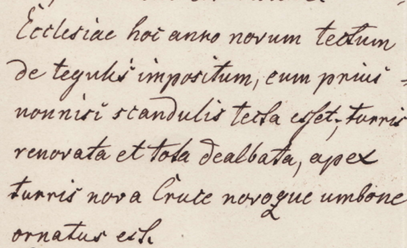 Ecclesiae hoc anno novum tectum
de tegulis impositum, cum prius
nonnisi scandulis tecta esset, turris
renovata et tota dealbata, apex
turris nova Cruce novoque umbone
ornatus est.